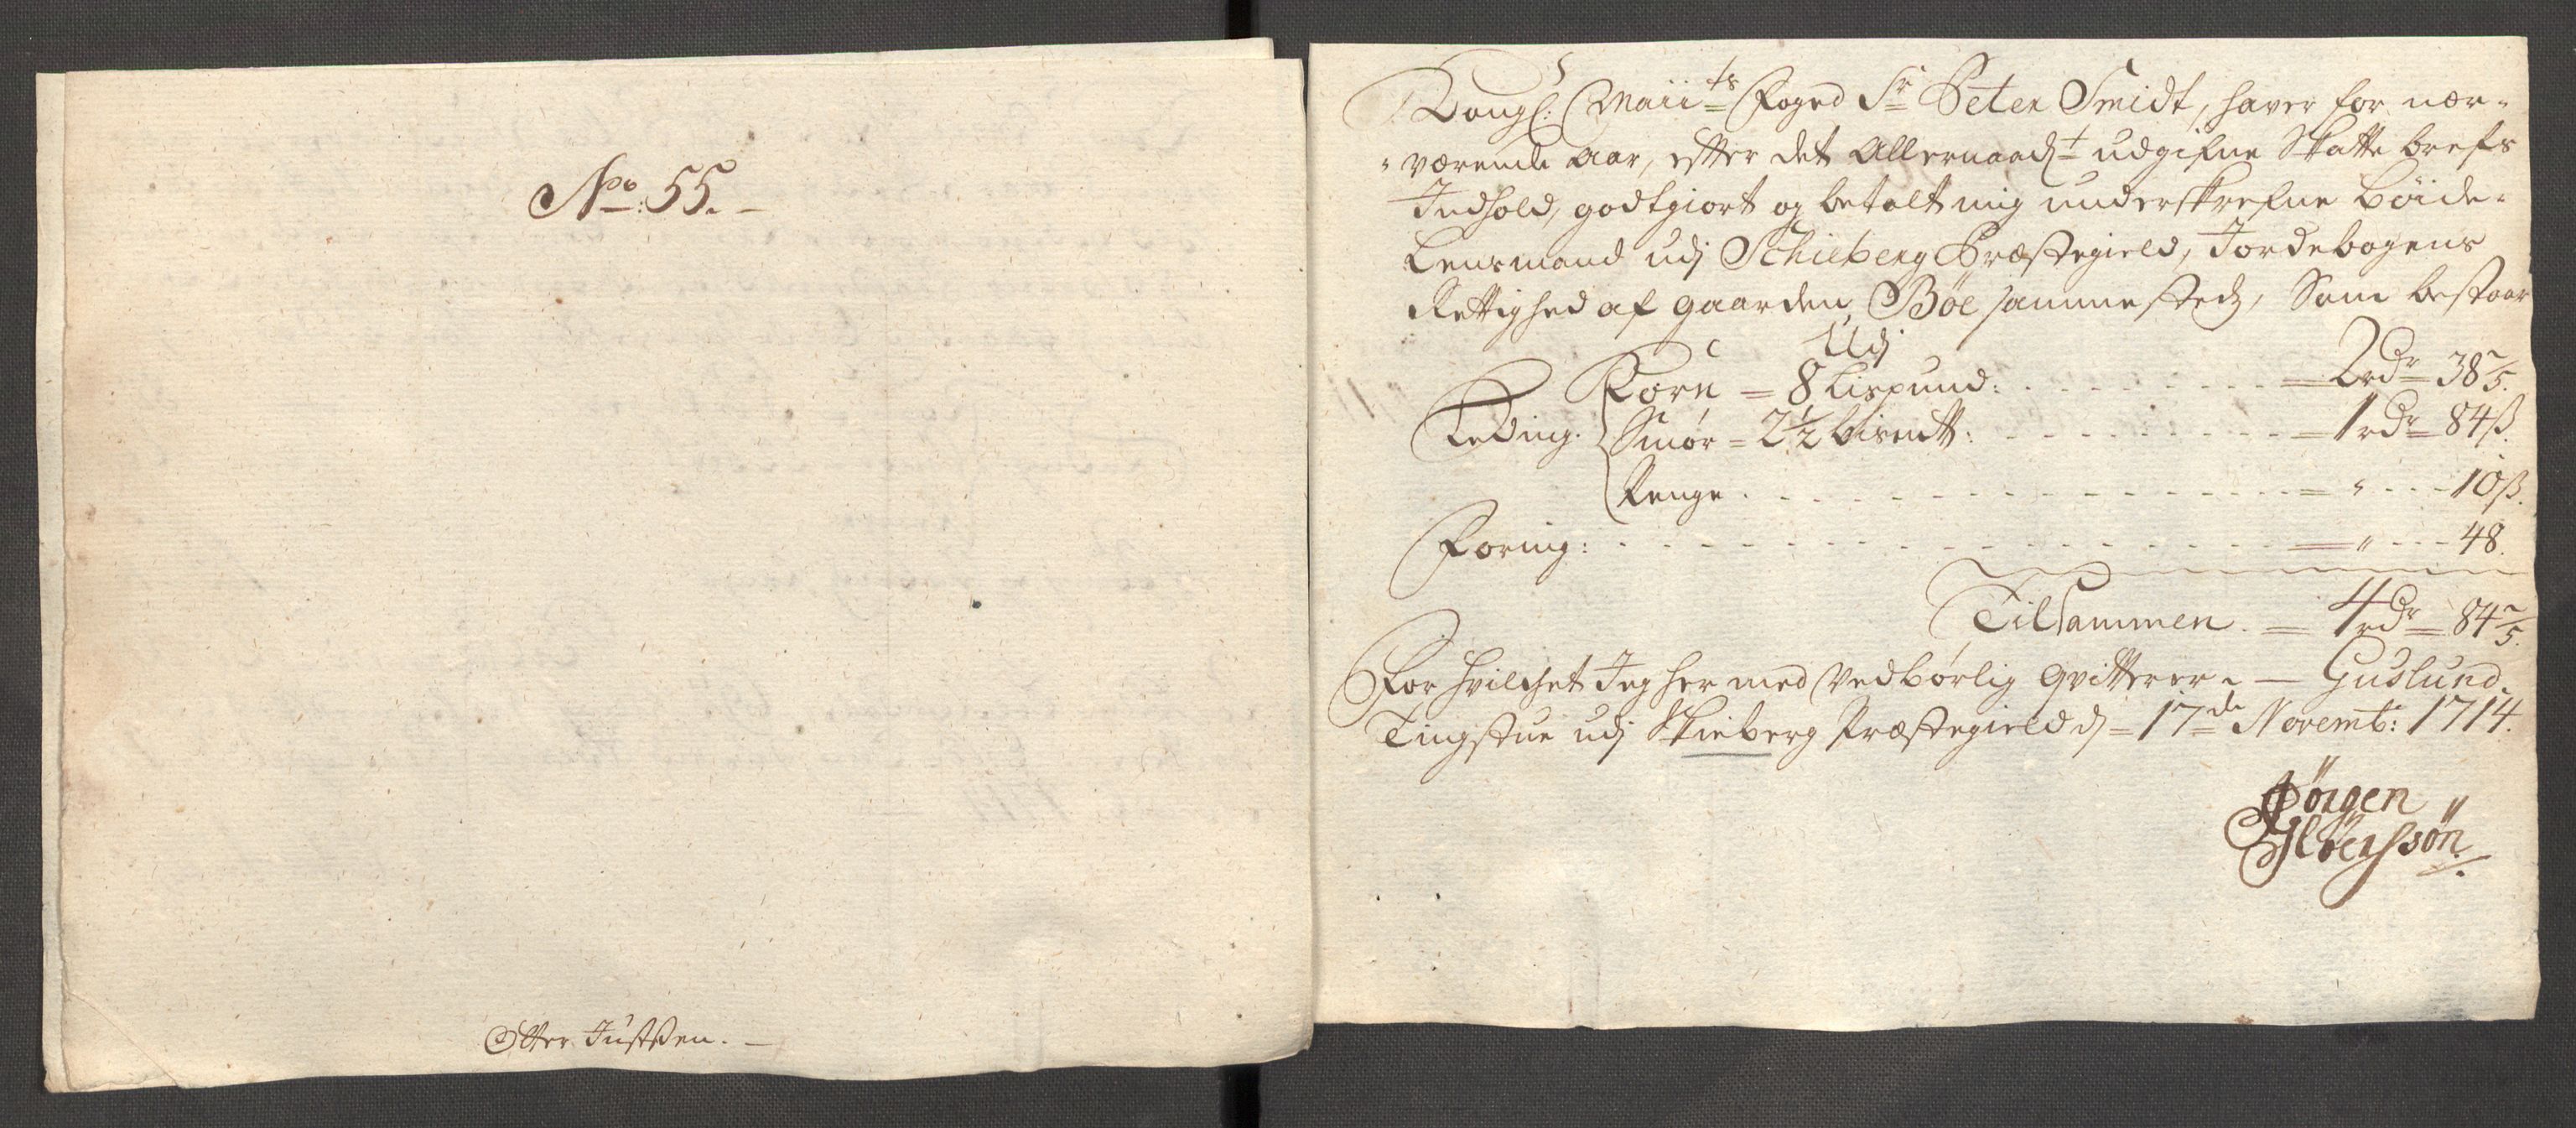 No: 55.
Otter Justsen.
Kongl: Maiits Foged Sr Peter Smidt, haver for nær-
værende Aar, efter det Allernaadt udgifne Skatte brefs
Indhold, godtgiort og betalt mig underskrefne böide-
Lensmand udj Schieberg Præstegield, Jordebogens
Rettighed af gaarden Böe sammestedz, Som bestaar
Udj
Korn = 8 Lispund: = 2 rdr = 38 2/5.
Leding. Smør = 2 1/2 bismtt: = 1 rdr = 84 ß.
Penge = " 10 ß.
Foring: = " 48.
Tilsammen = 4 rdr = 84 2/5.
For hvilchet Jeg her med Vedbørlig qvitterer. - Guslund
Tingstue udj Skieberg Præstegield d = 17de Novemb: 1714.
Jörgen